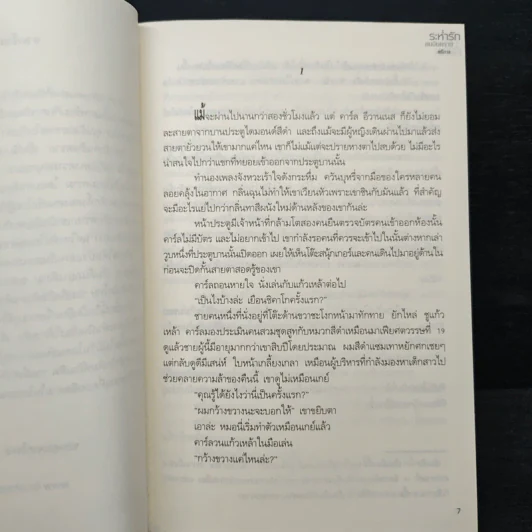 ระห่ำรัก
1
แม้จะผ่านไปนานกว่าสองชั่วโมงแล้ว แต่ คาร์ล อีวานเนส ก็ยังไม่ยอม
ละสายตาจากบานประตูไดมอนด์สีดำ และถึงแม้จะมีผู้หญิงเดินผ่านไปมาแล้วส่ง
สายตายั่วยวนให้เขามากแค่ไหน เขาก็ไม่แม้แต่จะปรายหางตาไปสบด้วย ไม่มีอะไร
น่าสนใจไปกว่าแขกที่ทยอยเข้าออกจากประตูบานนั้น
ทำนองเพลงจังหวะเร้าใจดังกระหึ่ม ควันบุหรี่จากมือของใครหลายคน
ลอยคลุ้งในอากาศ กลิ่นฉุนไม่ทำให้เขาเวียนหัวเพราะเขาชินกับมันแล้ว ที่สำคัญ
จะมีอะไรแย่ไปกว่ากลิ่นทาสีผนังใหม่ด้านหลังของเขากันล่ะ
หน้าประตูมีเจ้าหน้าที่กล้ามโตสองคนยืนตรวจบัตรคนเข้าออกห้องนั้น
คาร์ลไม่มีบัตร และไม่อยากเข้าไป เขากำลังรอคนที่ควรจะเข้าไปในนั้นต่างหากเล่า
วูบหนึ่งที่ประตูบานนั้นเปิดออก เผยให้เห็นโต๊ะสนุ้กเกอร์และคนเดินไปมาอยู่ด้านใน
ก่อนจะปิดกั้นสายตาสอดรู้ของเขา
คาร์ลถอนหายใจ นั่งเล่นกับแก้วเหล้าต่อไป
"เป็นไงบ้างล่ะ เยือนชิคาโกครั้งแรก?"
ชายคนหนึ่งที่นั่งอยู่ที่โต๊ะด้านขวาชะโงกหน้ามาทักทาย ยักไหล่ ชูแก้ว
เหล้า คาร์ลมองประเมินคนสวมชุดสูทกับหมวกสีดำเหมือนมาเฟียศตวรรษที่ 19
ดูแล้วชายผู้นี้มีอายุมากกว่าเขาสิบปีโดยประมาณ ผมสีดำแซมเทาหยักศกเซยๆ
แต่กลับดูดีมีเสน่ห์ ใบหน้าเกลี้ยงเกลา เหมือนผู้บริหารที่กำลังมองหาเด็กสาวไป
ช่วยคลายความล้าของคืนนี้ เขาดูไม่เหมือนเกย์
"คุณรู้ได้ยังไงว่านี่เป็นครั้งแรก?"
"ผมกว้างขวางนะจะบอกให้" เขาขยิบตา
เอาล่ะ หมอนี่เริ่มทำตัวเหมือนเกย์แล้ว
คาร์ลวนแก้วเหล้าในมือเล่น
"กว้างขวางแค่ไหนล่ะ?"
7